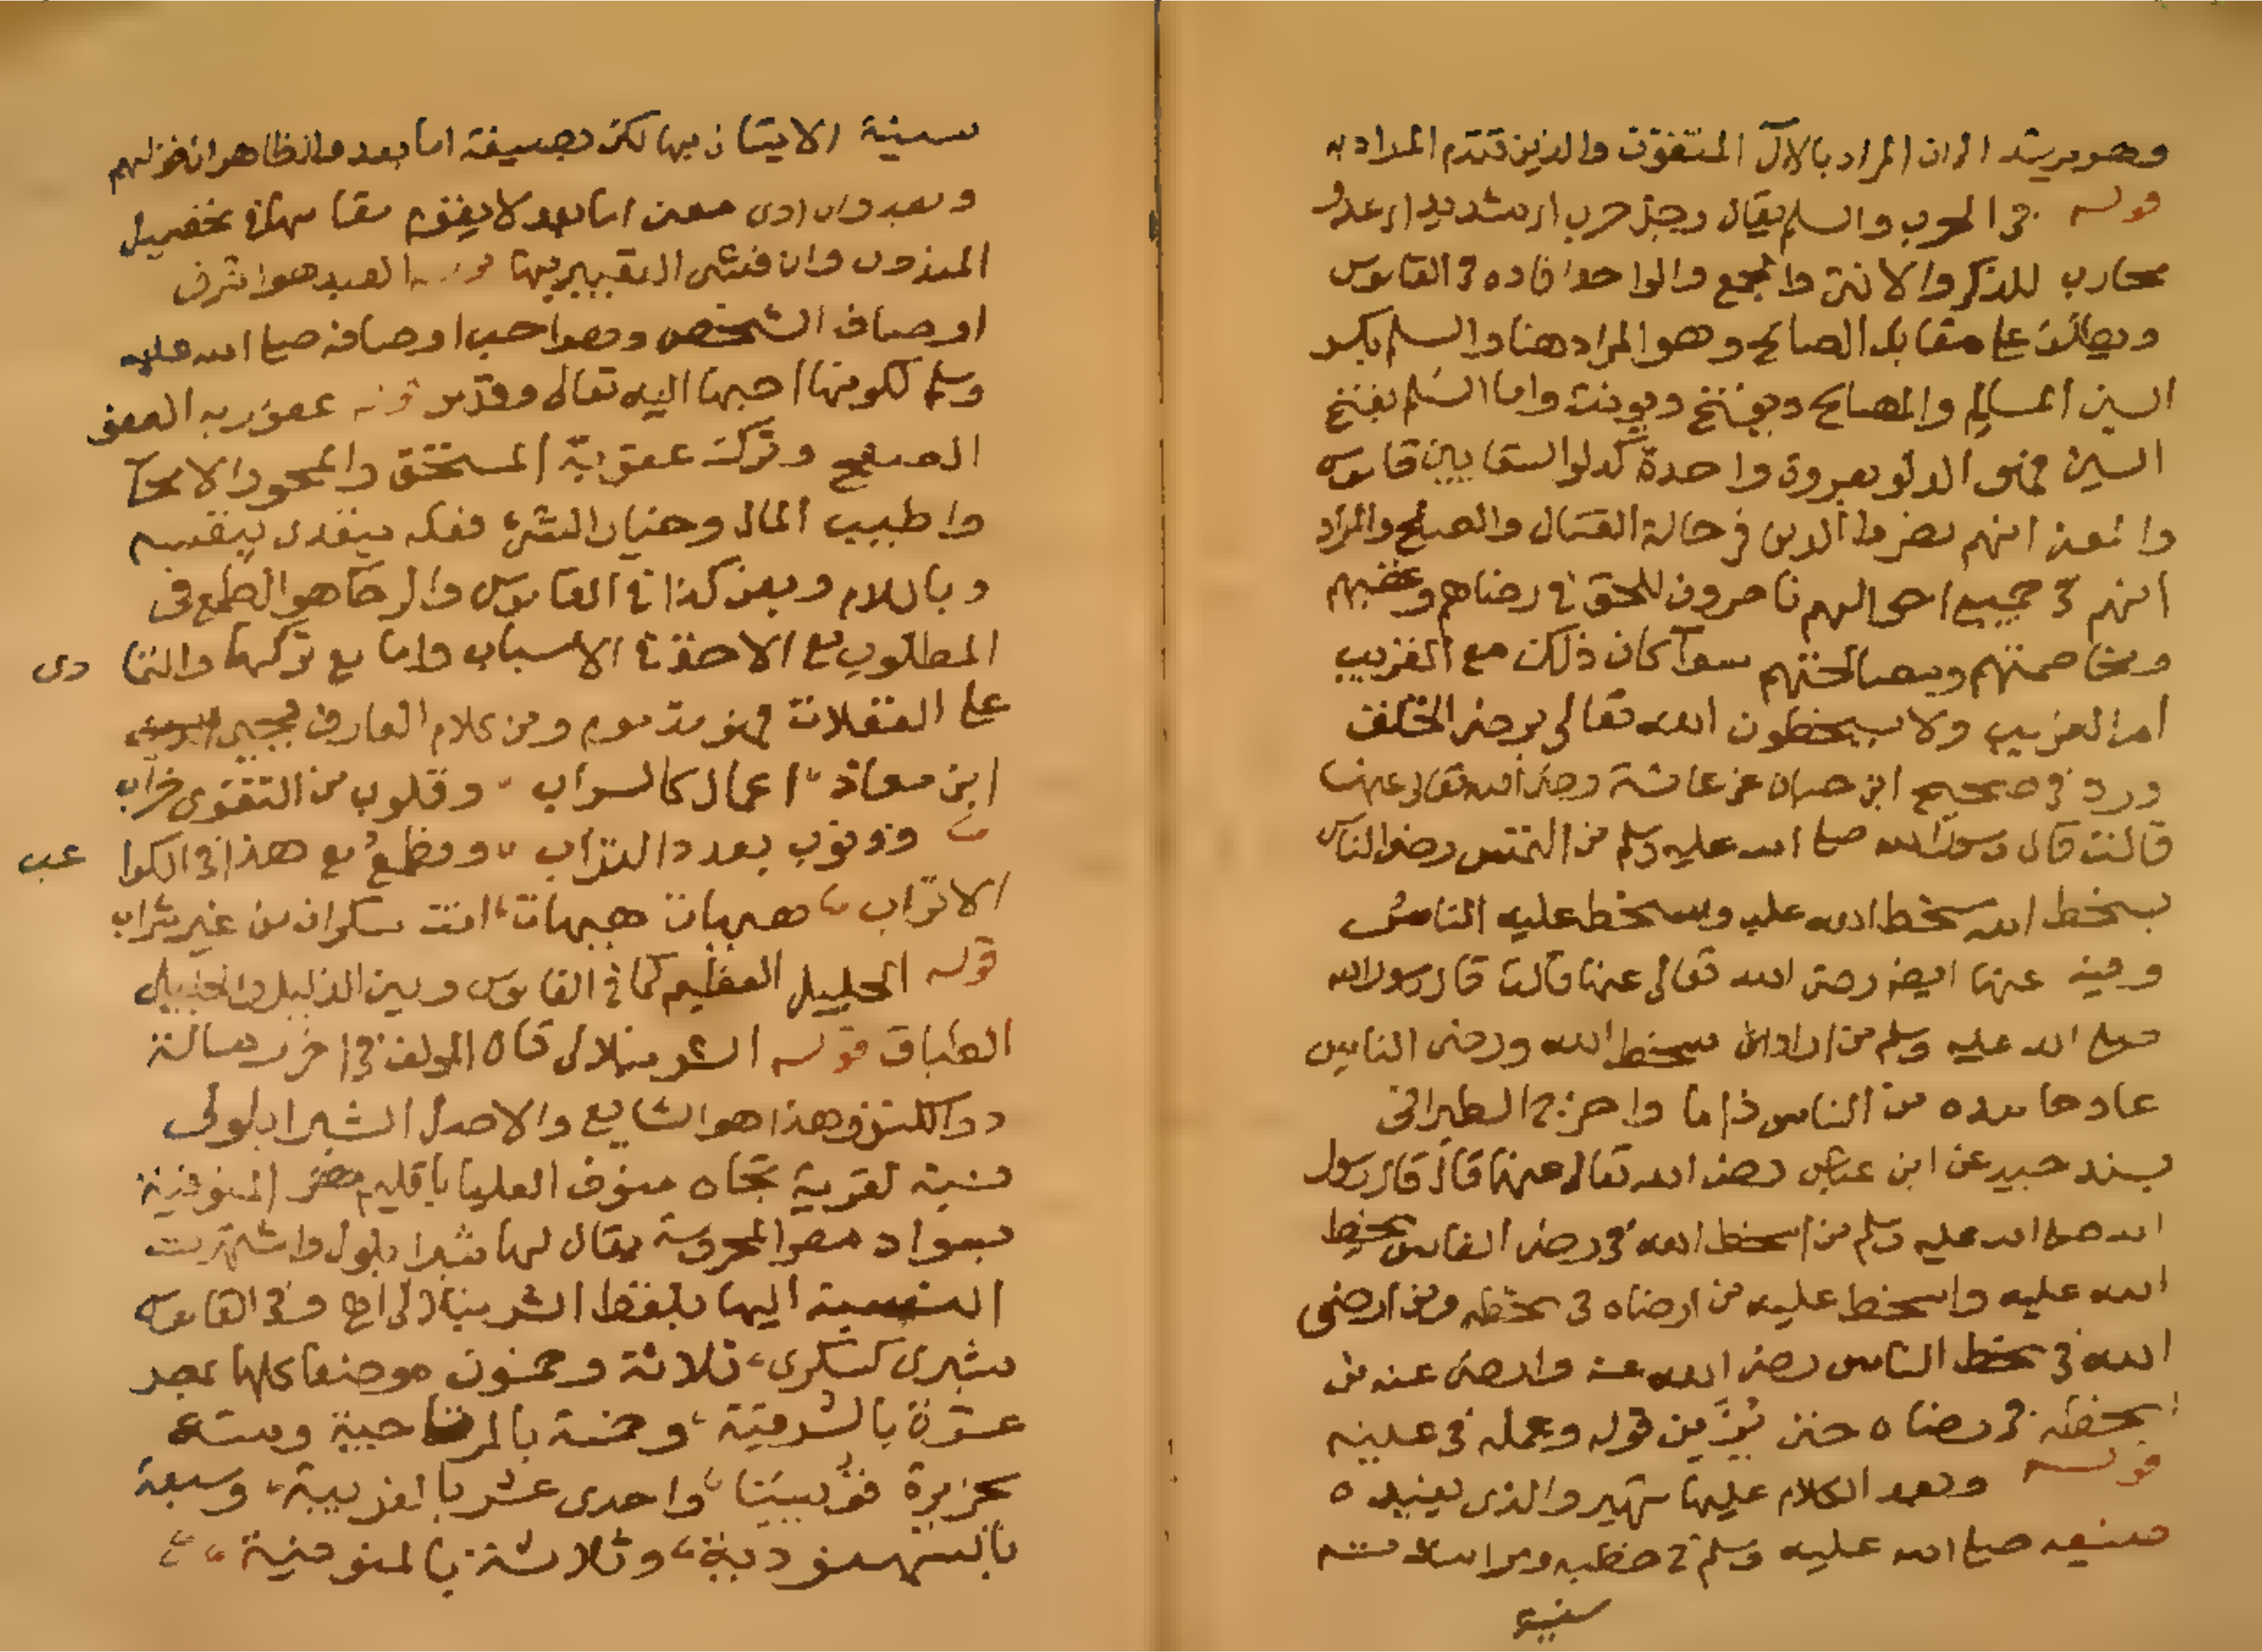 وهو يرشد الى ان المراد بالآل المتقون والذين تقدم المراد به
قوله في الحرب والسلم يقال رجل حرب اي شديد اي عدو
محارب للذكر والانثى والجمع والواحد افاده في القاموس
ويطلق على مقابل الصالح وهو المراد هنا والسلم بكسر
السين المسالم والمصالح ويفتح ويونث واما السلم بفتح
السين فهو الدلو بعروة واحدة كدلو السقايين قاموس
والمعنى انهم نصروا الدين في حالة القتال والصلح والمراد
انهم في جميع احوالهم ناصرون للحق في رضاهم وغضبهم
ومخاصمتهم ومصالحتهم سوآ كان ذلك مع الغريب
ام القريب ولا يسخطون الله تعالى برضى الخلق
ورد في صحيح ابن حبان عن عائشة رضى الله تعالى عنها
قالت قال رسول الله صلى الله عليه وسلم من التمس رضى الناس
بسخط الله سخط الله عليه وسخط عليه الناس
وفيه عنها ايضا رضى الله تعالى عنها قالت قال رسول الله
صلى الله عليه وسلم من اراد سخط الله ورضى الناس
عاد حامده من الناس ذاما واخرج الطبرانى
بسند جيد عن ابن عباس رضى الله تعالى عنهما قال قال رسول
الله صلى الله عليه وسلم من اسخط الله في رضى الناس سخط
الله عليه واسخط عليه من ارضاه في سخطه ومن ارضى
الله في سخط الناس رضى الله عنه وارضى عنه من
اسخطه في رضاه حتى يزين قوله وعمله في عينه
قوله وبعد الكلام عليها شهير والذى يفيده
صنيعه صلى الله عليه وسلم في خطبه ومراسلاته
سنية
سنية الاتيان بها لكن بصيغة اما بعد والظاهر ان قولهم
وبعد وان ادى معنى اما بعد لا يقوم مقامها في تحصيل
المندوب وان فشى التعبير بها قوله العبد هو اشرف
اوصاف الشخص وهو احب اوصافه صلى الله عليه
وسلم لكونها احبها اليه تعالى قوله عفو ربه العفو
الصفح وترك عقوبة المستحق والمحو والامحآ
واطيب المال وخيار الشئ ففكه يتعدى بنفسه
وباللام وبعن كذا في القاموس والرجا هو الطمع في
المطلوب مع الاخذ في الاسباب واما مع تركها والتما دى
على الغفلات فهو مذموم ومن كلام العارف يحيى
ابن معاذ اعمال كالسراب وقلوب من التقوى خراب
وذنوب بعدد التراب وتطمع مع هذا في الكوا عب
الاتراب هيهات هيهات انت سكران من غير شراب
قوله الجليل العظيم كما في القاموس وبين الذليل والجليل
الطباق قوله الشرنبلالى قال المولف في اخر رسالة
در الكنوز هذا هو الشايع والاصل الشبرا بلولى
نسبة لقرية تجاه منوف العليا باقليم المنوفية
بسواد مصر المحروسة يقال لها شبرا بلول واشتهرت
النسبة اليها بلفظ الشرنبلالى اه وفى القاموس
شبرى كسكرى ثلاثة وخمسون موضعا كلها بمصر
عشرة بالشرقية وخمسة بالمرتاحية وستة
بجزيرة قوسنيا واحدى عشر بالغربية وسبعة
بالسمنودية وثلاثة بالمنوفية